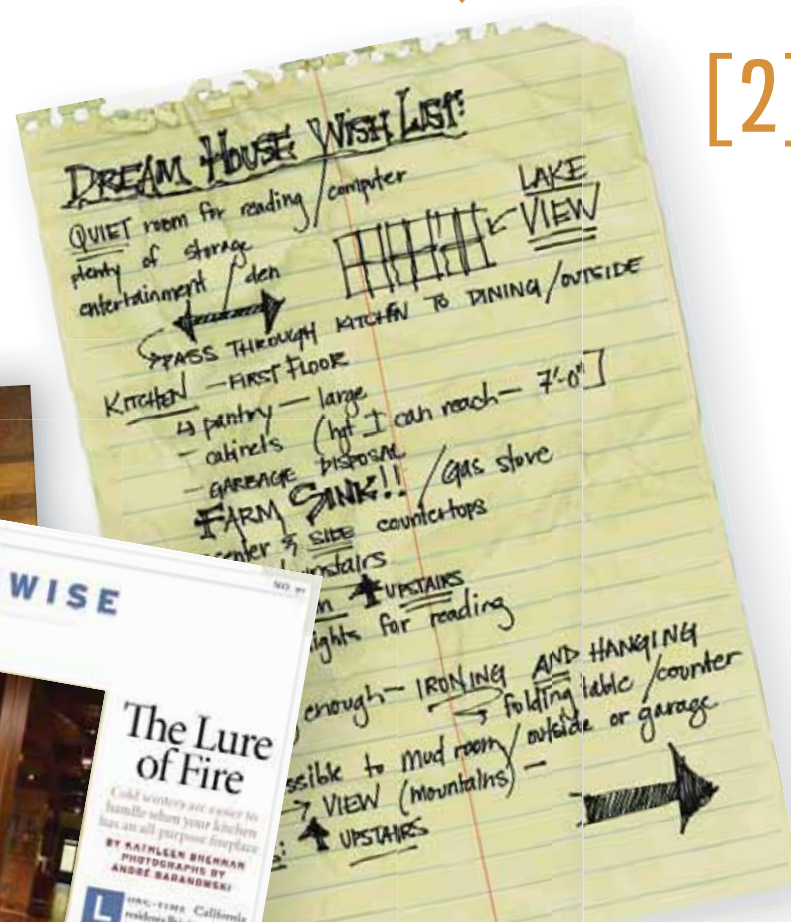 [2]
DREAM HOUSE WISH LIST:
QUIET room for reading / computer
plenty of storage
entertainment / den
LAKE
VIEW
PASS THROUGH KITCHEN TO DINING / OUTSIDE
KITCHEN - FIRST FLOOR
pantry - large
- cabinets (hgt I can reach - 7'-0"]
- GARBAGE DISPOSAL
FARM SINK!! / gas stove
enter & SIDE countertops
nstairs
n UPSTAIRS
ights for reading
enough - IRONING AND HANGING
folding table / counter
ssible to mud room / outside or garage
VIEW (mountains) -
: UPSTAIRS
WISE
The Lure
of Fire
Cold winters are easier to
handle when your kitchen
has an all-purpose fireplace
BY KATHLEEN BRENNAN
PHOTOGRAPHS BY
ANDRÉ BARANOWSKI
LONG-TIME California
residents